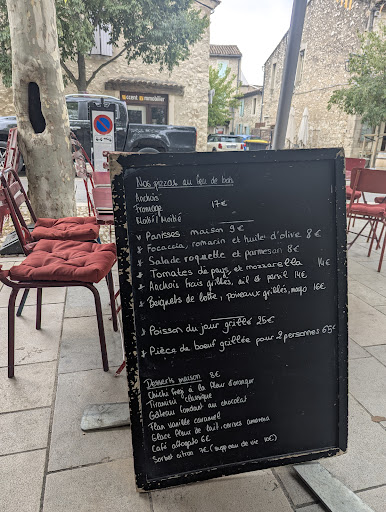 accent immobilier
Nos pizzas au feu de bois
Anchois
Fromage 17€
Moitié/Moitié
* Panisses maison 9€
* Focaccia, romarin et huile d'olive 8€
* Salade roquette et parmesan 8€
* Tomates de pays, et mozzarella 14€
* Anchois frais grillés, ail et persil 14€
* Beignets de lotte, poireaux grillés, mayo 16€
* Poisson du jour grillé 25€
* Pièce de boeuf grillée pour 2 personnes 65€
Desserts maison 8€
Chichi fregi à la fleur d'oranger
Tiramisu classique
Gâteau fondant au chocolat
Flan vanille caramel
Glace fleur de lait, cerises amarena
Café affogato 6€
Sorbet citron 7€ (supp eau de vie 10€)